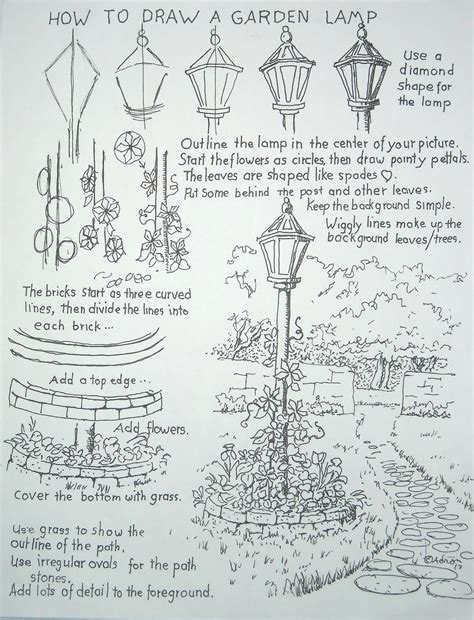 HOW TO DRAW A GARDEN LAMP
Use a
diamond
shape for
the lamp
Outline the lamp in the center of your picture.
Start the flowers as circles, then draw pointy pettals.
The leaves are shaped like spades ♡.
Put some behind the post and other leaves.
Keep the background simple.
Wiggly lines make up the
background leaves/trees.
The bricks start as three curved
lines, then divide the lines into
each brick ...
Add a top edge...
Add flowers.
Cover the bottom with grass.
Use grass to show the
outline of the path.
Use irregular ovals for the path
stones.
Add lots of detail to the foreground.